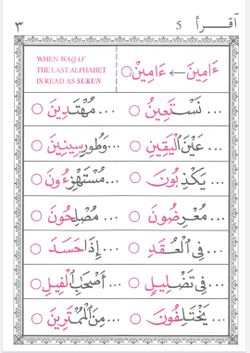 ٣ 5 اقرأ
WHEN WAQAF
THE LAST ALPHABET
IS READ AS SUKUN
ءَامِينَ ← ءَامِيْنْ
نَسْتَعِينُ ... مُهْتَدِينَ ...
عَيْنَ الْيَقِينِ ... وَطُورِ سِينِينَ ...
يَكْذِبُونَ ... مُسْتَهْزِءُونَ ...
مُعْرِضُونَ ... مُصْلِحُونَ ...
فِي الْعُقَدِ ... إِذَا حَسَدَ ...
فِي تَضْلِيلٍ ... أَصْحَابِ الْفِيلِ ...
يَخْتَلِفُونَ ... مِنَ الْمُمْتَرِينَ ...